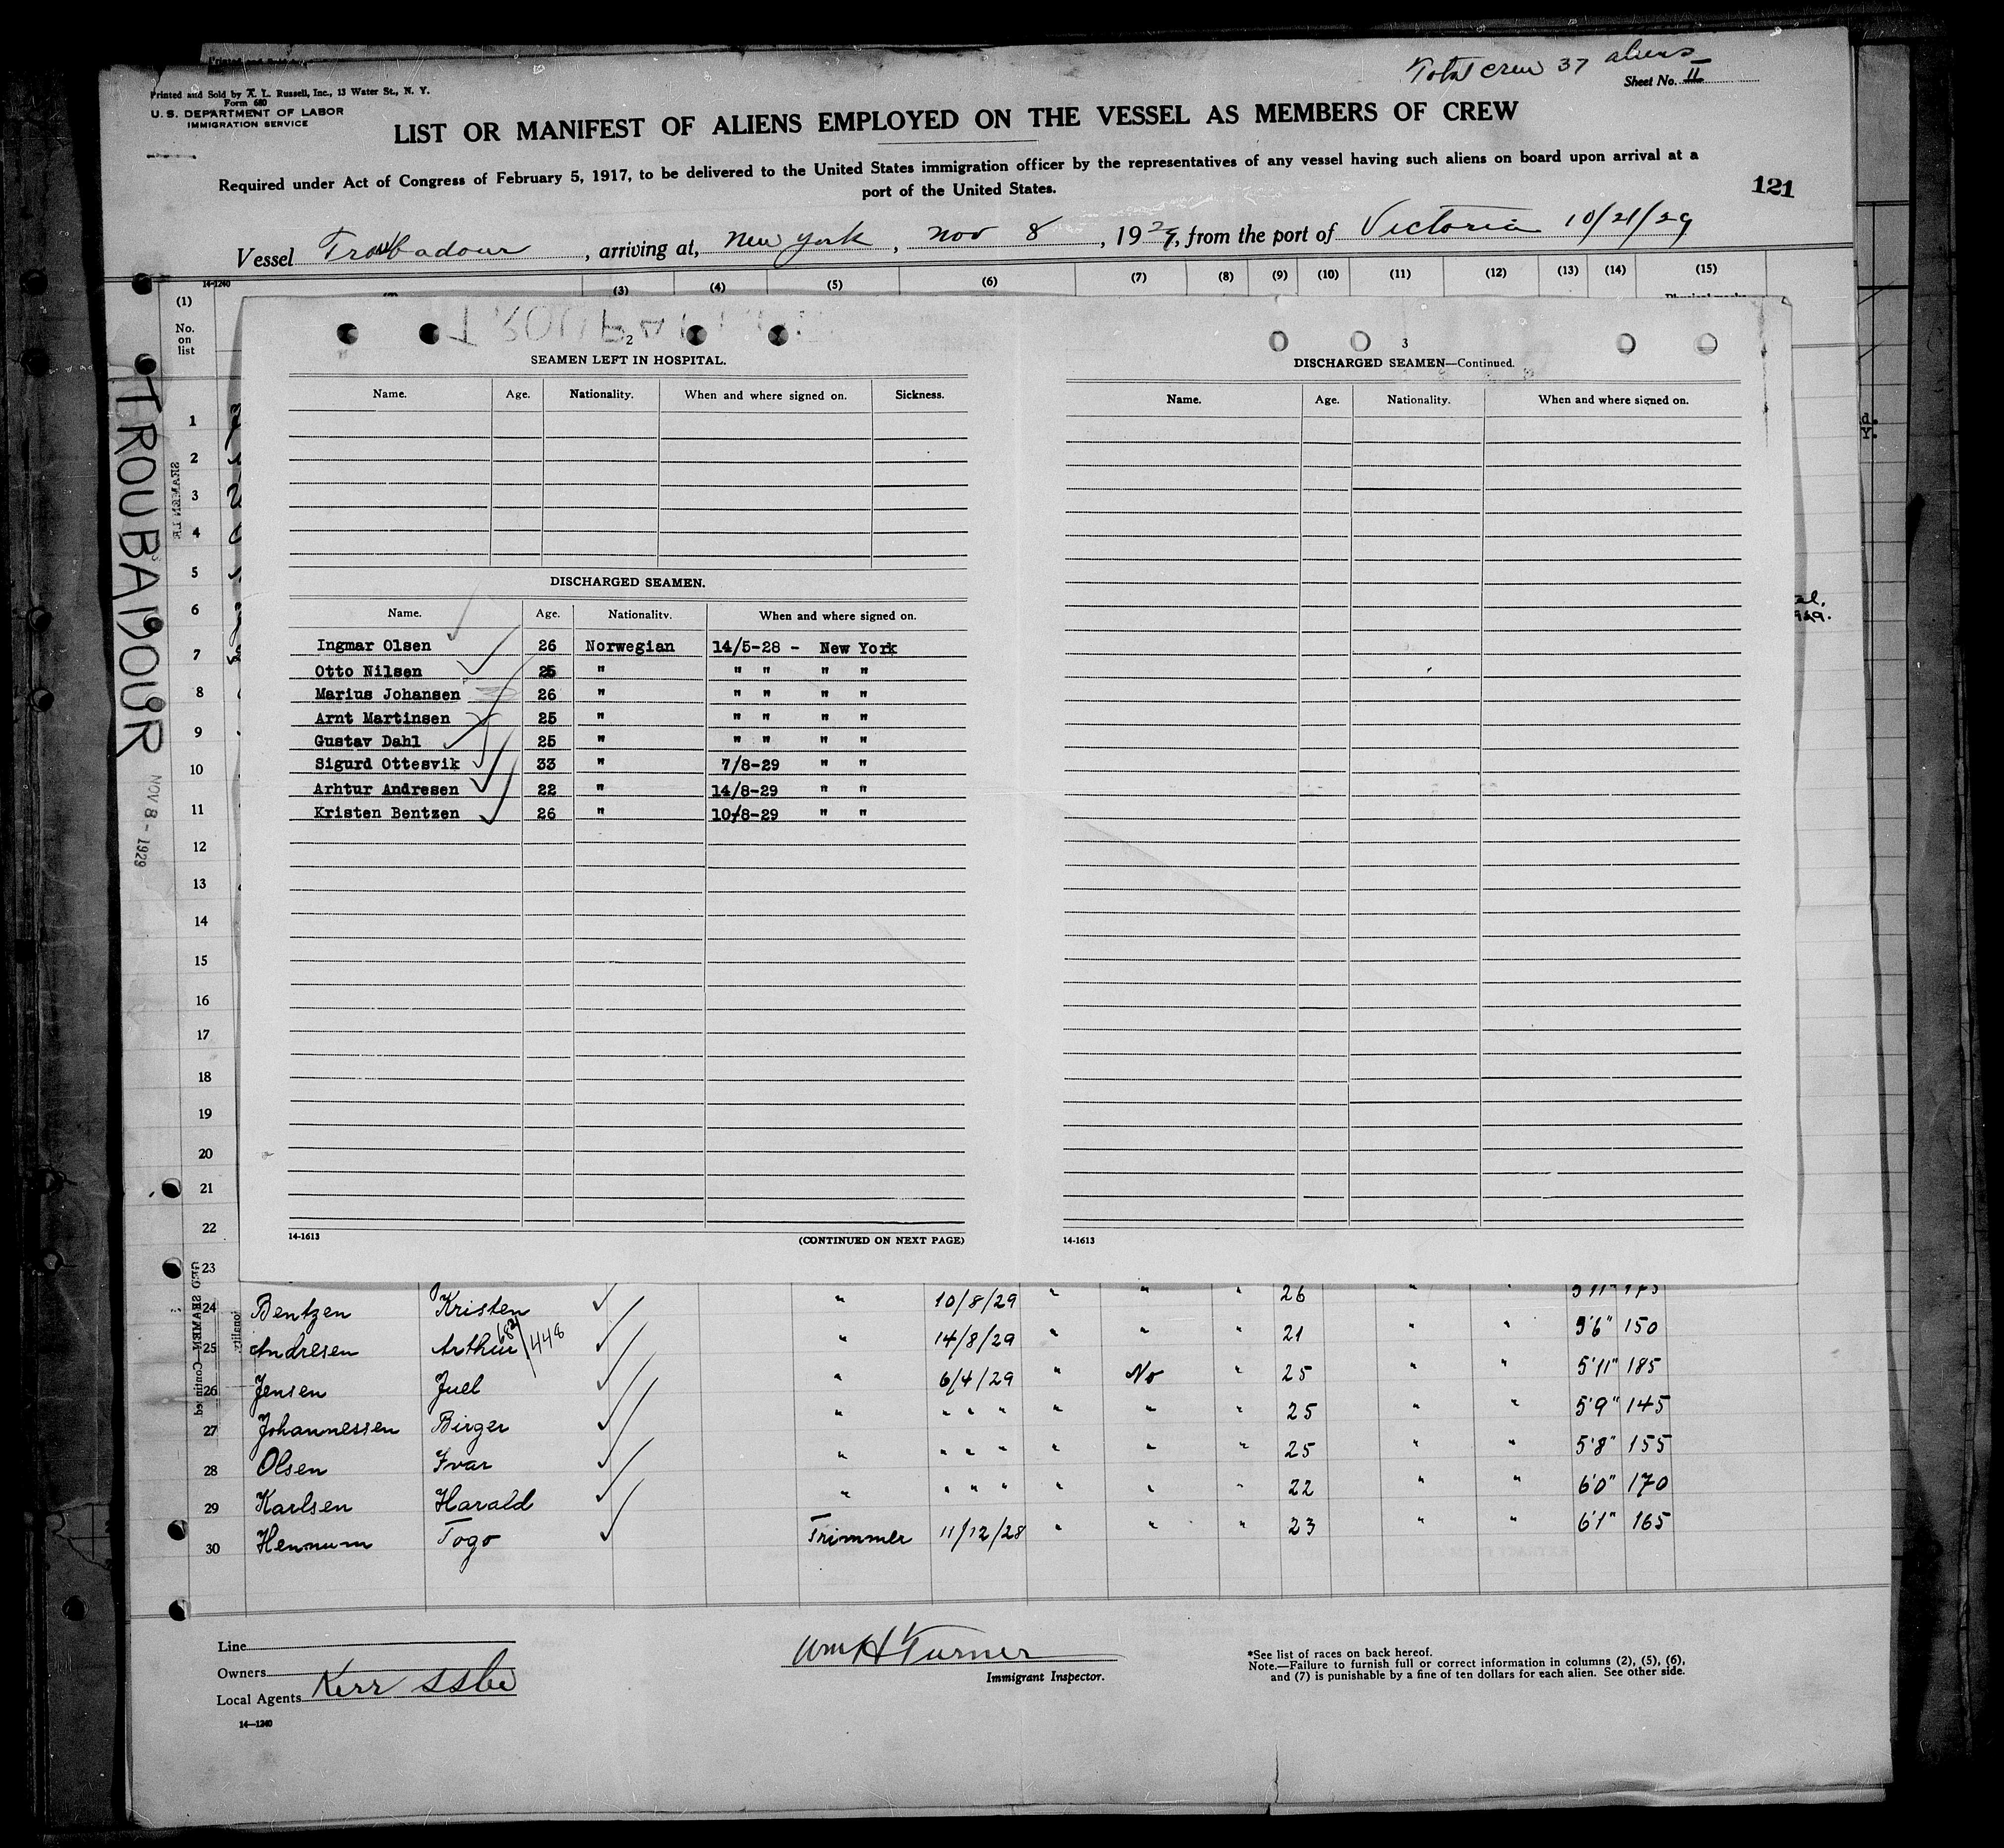 Total crew 37 aliens
Printed and Sold by A. L. Russell, Inc., 13 Water St., N. Y.
Form 680
U. S. DEPARTMENT OF LABOR
IMMIGRATION SERVICE
Sheet No. II
LIST OR MANIFEST OF ALIENS EMPLOYED ON THE VESSEL AS MEMBERS OF CREW
Required under Act of Congress of February 5, 1917, to be delivered to the United States immigration officer by the representatives of any vessel having such aliens on board upon arrival at a
port of the United States.
121
Vessel Troubadour, arriving at, New York, Nov 8, 1929, from the port of Victoria 10/21/29
14-1240
(1) (3) (4) (5) (6) (7) (8) (9) (10) (11) (12) (13) (14) (15)
No.
on
list
TROUBADOUR
NOV 8 - 1929
1
2
3
4
5
6
7
8
9
10
11
12
13
14
15
16
17
18
19
20
21
22
23
2
SEAMEN LEFT IN HOSPITAL.
Name. Age. Nationality. When and where signed on. Sickness.
DISCHARGED SEAMEN.
Name. Age. Nationality. When and where signed on.
Ingmar Olsen 26 Norwegian 14/5-28 - New York
Otto Nilsen 25 " " " " "
Marius Johansen 26 " " " " "
Arnt Martinsen 25 " " " " "
Gustav Dahl 25 " " " " "
Sigurd Ottesvik 33 " 7/8-29 " "
Arhtur Andresen 22 " 14/8-29 " "
Kristen Bentzen 26 " 10/8-29 " "
14-1613 (CONTINUED ON NEXT PAGE)
3
DISCHARGED SEAMEN—Continued.
Name. Age. Nationality. When and where signed on.
14-1613
24 Bentzen Kristen " 10/8/29 " " " 26 5'11" 175
25 Andresen Arthur 682/448 " 14/8/29 " " " 21 " " 5'6" 150
26 Jensen Juel " 6/4/29 " No " 25 " " 5'11" 185
27 Johannessen Birger " " " " " " " 25 " " 5'9" 145
28 Olsen Ivar " " " " " " " 25 " " 5'8" 155
29 Karlsen Harald " " " " " " " 22 " " 6'0" 170
30 Hennum Togo Trimmer 11/12/28 " " " 23 " " 6'1" 165
Line
Owners
Local Agents Kerr SS Co
14—1240
Wm H Turner
Immigrant Inspector.
*See list of races on back hereof.
Note.—Failure to furnish full or correct information in columns (2), (5), (6),
and (7) is punishable by a fine of ten dollars for each alien. See other side.